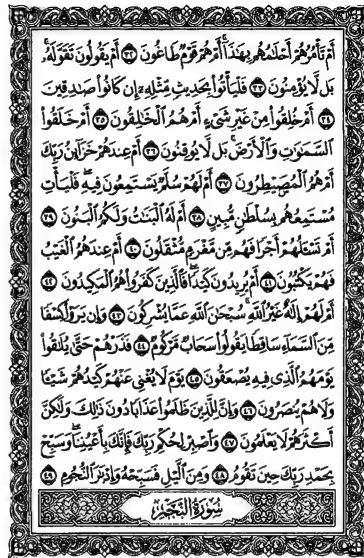 أَمْ تَأْمُرُهُمْ أَحْلَٰمُهُم بِهَٰذَآ ۚ أَمْ هُمْ قَوْمٌ طَاغُونَ ٣٢ أَمْ يَقُولُونَ تَقَوَّلَهُۥ ۚ
بَل لَّا يُؤْمِنُونَ ٣٣ فَلْيَأْتُوا۟ بِحَدِيثٍ مِّثْلِهِۦٓ إِن كَانُوا۟ صَٰدِقِينَ
٣٤ أَمْ خُلِقُوا۟ مِنْ غَيْرِ شَىْءٍ أَمْ هُمُ ٱلْخَٰلِقُونَ ٣٥ أَمْ خَلَقُوا۟
ٱلسَّمَٰوَٰتِ وَٱلْأَرْضَ ۚ بَل لَّا يُوقِنُونَ ٣٦ أَمْ عِندَهُمْ خَزَآئِنُ رَبِّكَ
أَمْ هُمُ ٱلْمُصَۣيْطِرُونَ ٣٧ أَمْ لَهُمْ سُلَّمٌ يَسْتَمِعُونَ فِيهِ ۖ فَلْيَأْتِ
مُسْتَمِعُهُم بِسُلْطَٰنٍ مُّبِينٍ ٣٨ أَمْ لَهُ ٱلْبَنَٰتُ وَلَكُمُ ٱلْبَنُونَ ٣٩
أَمْ تَسْـَٔلُهُمْ أَجْرًا فَهُم مِّن مَّغْرَمٍ مُّثْقَلُونَ ٤٠ أَمْ عِندَهُمُ ٱلْغَيْبُ
فَهُمْ يَكْتُبُونَ ٤١ أَمْ يُرِيدُونَ كَيْدًا ۖ فَٱلَّذِينَ كَفَرُوا۟ هُمُ ٱلْمَكِيدُونَ ٤٢
أَمْ لَهُمْ إِلَٰهٌ غَيْرُ ٱللَّهِ ۚ سُبْحَٰنَ ٱللَّهِ عَمَّا يُشْرِكُونَ ٤٣ وَإِن يَرَوْا۟ كِسْفًا
مِّنَ ٱلسَّمَآءِ سَاقِطًا يَقُولُوا۟ سَحَابٌ مَّرْكُومٌ ٤٤ فَذَرْهُمْ حَتَّىٰ يُلَٰقُوا۟
يَوْمَهُمُ ٱلَّذِى فِيهِ يُصْعَقُونَ ٤٥ يَوْمَ لَا يُغْنِى عَنْهُمْ كَيْدُهُمْ شَيْـًٔا
وَلَا هُمْ يُنصَرُونَ ٤٦ وَإِنَّ لِلَّذِينَ ظَلَمُوا۟ عَذَابًا دُونَ ذَٰلِكَ وَلَٰكِنَّ
أَكْثَرَهُمْ لَا يَعْلَمُونَ ٤٧ وَٱصْبِرْ لِحُكْمِ رَبِّكَ فَإِنَّكَ بِأَعْيُنِنَا ۖ وَسَبِّحْ
بِحَمْدِ رَبِّكَ حِينَ تَقُومُ ٤٨ وَمِنَ ٱلَّيْلِ فَسَبِّحْهُ وَإِدْبَٰرَ ٱلنُّجُومِ ٤٩
سُورَةُ ٱلنَّجْمِ